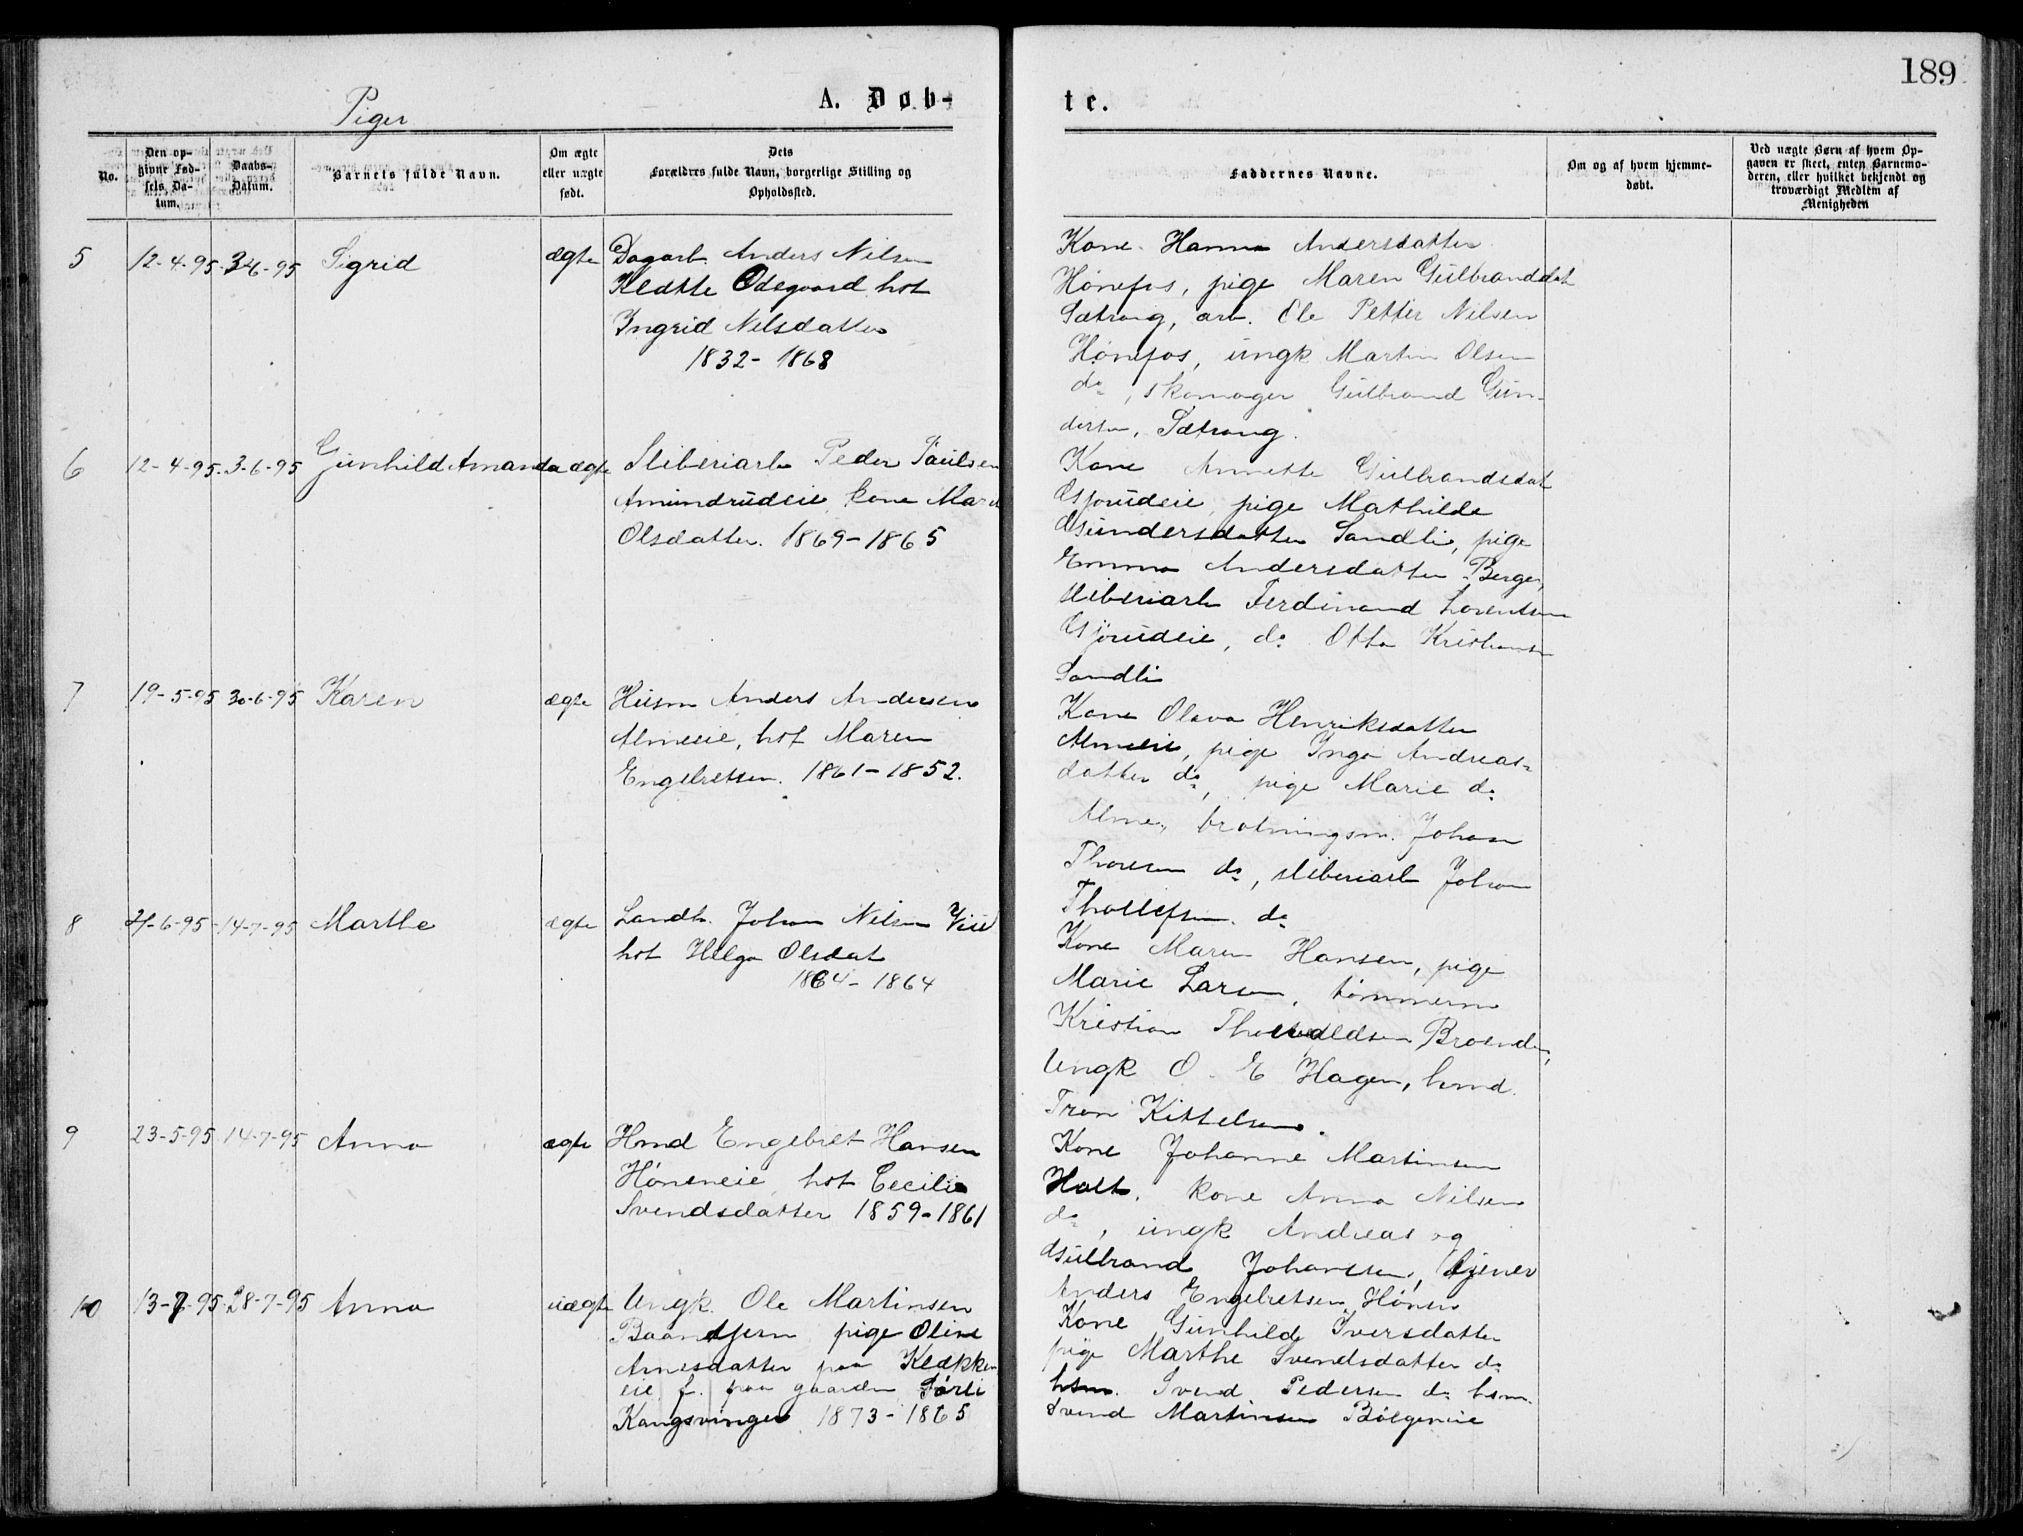 189
Piger
A. Døb-
te.
No.
Den op-
givne Fød-
sels Da-
tum.
Daabs-
Datum.
Barnets fulde Navn.
Om ægte
eller uægte
født.
Dets
Forældres fulde Navn, borgerlige Stilling og
Opholdssted.
Faddernes Navne.
Om og af hvem hjemme-
døbt.
Ved uægte Børn af hvem Op-
gaven er skeet, enten Barnemo-
deren, eller hvilket bekjendt og
troværdigt Medlem af
Menigheden
5
12-4-95
3-6-95
Sigrid
ægte
Dagarb. Anders Nilsen
Klække Ødegaard hst
Ingrid Nilsdatter
1832-1868
Kone Hanna Andersdatter
Hønefos, pige Maren Gulbrandsdat
Sætrang, arb. Ole Petter Nilsen
Hønefos, ungk Martin Olsen
do, skomager Gulbrand Gun-
dersen, Sætrang.
6
12-4-95
3-6-95
Gunhild Amanda
ægte
Sliberiarb Peder Paulsen
Amundrudeie, kone Maren
Olsdatter. 1869-1865
Kone Annette Gulbrandsdat
Gjorudeie, pige Mathilde
Gundersdatter Sandli, pige
Emma Andersdatter Berger,
sliberiarb Ferdinand Lorentsen
Gjorudeie, do Otto Kristiansen
Sandli
7
19-5-95
30-6-95
Karen
ægte
Husm Anders Andersen
Almeeie, hst Maren
Engebretsen. 1861-1852.
Kone Olava Henriksdatter
Almeeie, pige Inga Andreas-
datter do, pige Marie do
Alme, brotningsm. Johan
Thoresen do, sliberiarb Johan
do
8
4-6-95
14-7-95
Marthe
ægte
Landh. Johan Nilsen Viul
hst Helga Olsdat
1864-1864
Kone Maren Hansen, pige
Marie Larsen, tømmerm
Kristian Thorvaldsen Braenden,
Ungk O. E Hagen, hmd
Tron Kittelsen.
9
23-5-95
14-7-95
Anna
ægte
Hmd Engebret Hansen
Hønsneie, hst Cecilie
Svendsdatter 1859-1861
Kone Johanne Martinsen
Holt, kone Anna Nilsen
do, ungk Andreas og
Gulbrand Johansen, tjener
Anders Engebretsen Hønen
10
13-7-95
28-7-95
Anna
uægte
Ungk. Ole Martinsen
Baantjern pige Oline
Arnesdatter paa Klækken
eie f. paa gaarden Sørli
Kongsvinger 1873-1865
Kone Gunhild Iversdatter
pige Marthe Svendsdatter do
hsm. Svend Pedersen do hsm.
Svend Martinsen Bølgeneie